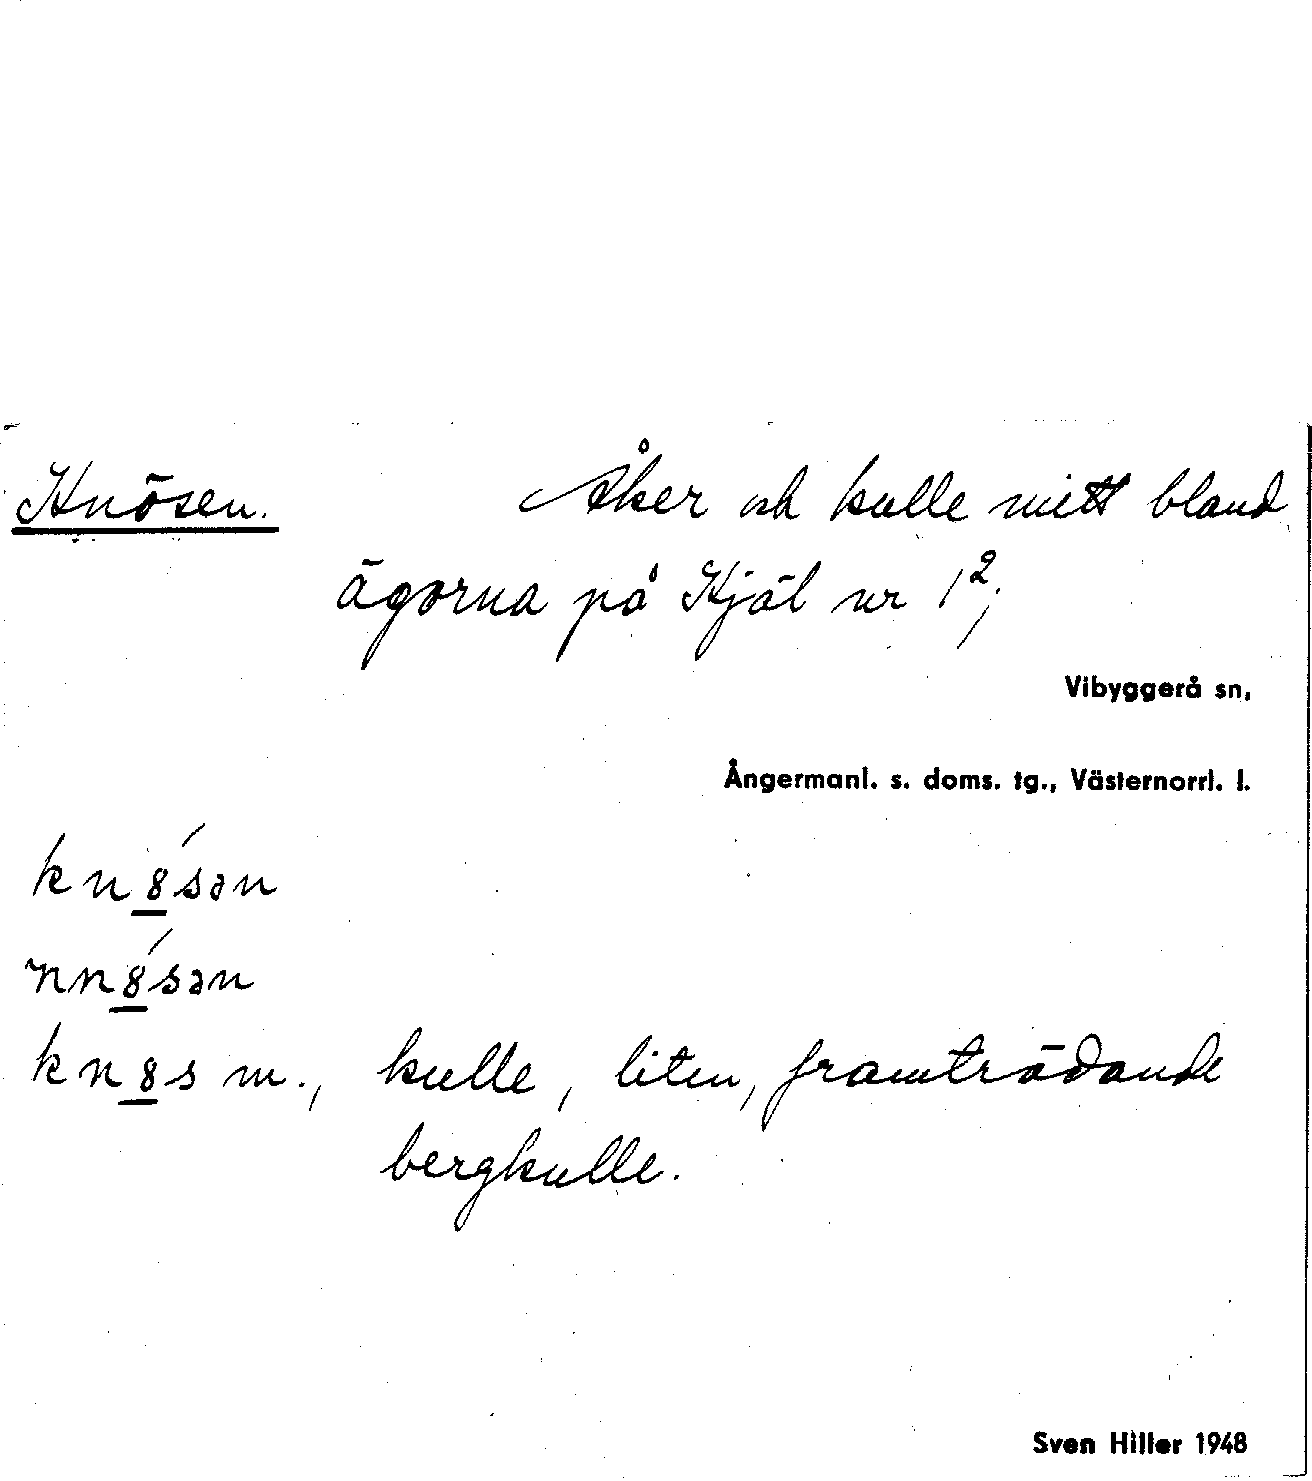 Knösen. Åker och kulle mitt bland
ägorna på Kjäl nr 1²;
Vibyggerå sn,
Ångermanl. s. doms. tg., Västernorrl. l.
kn8́sən
nn8́sən
kn8s m., kulle, liten, framträdande
bergkulle.
Sven Hiller 1948